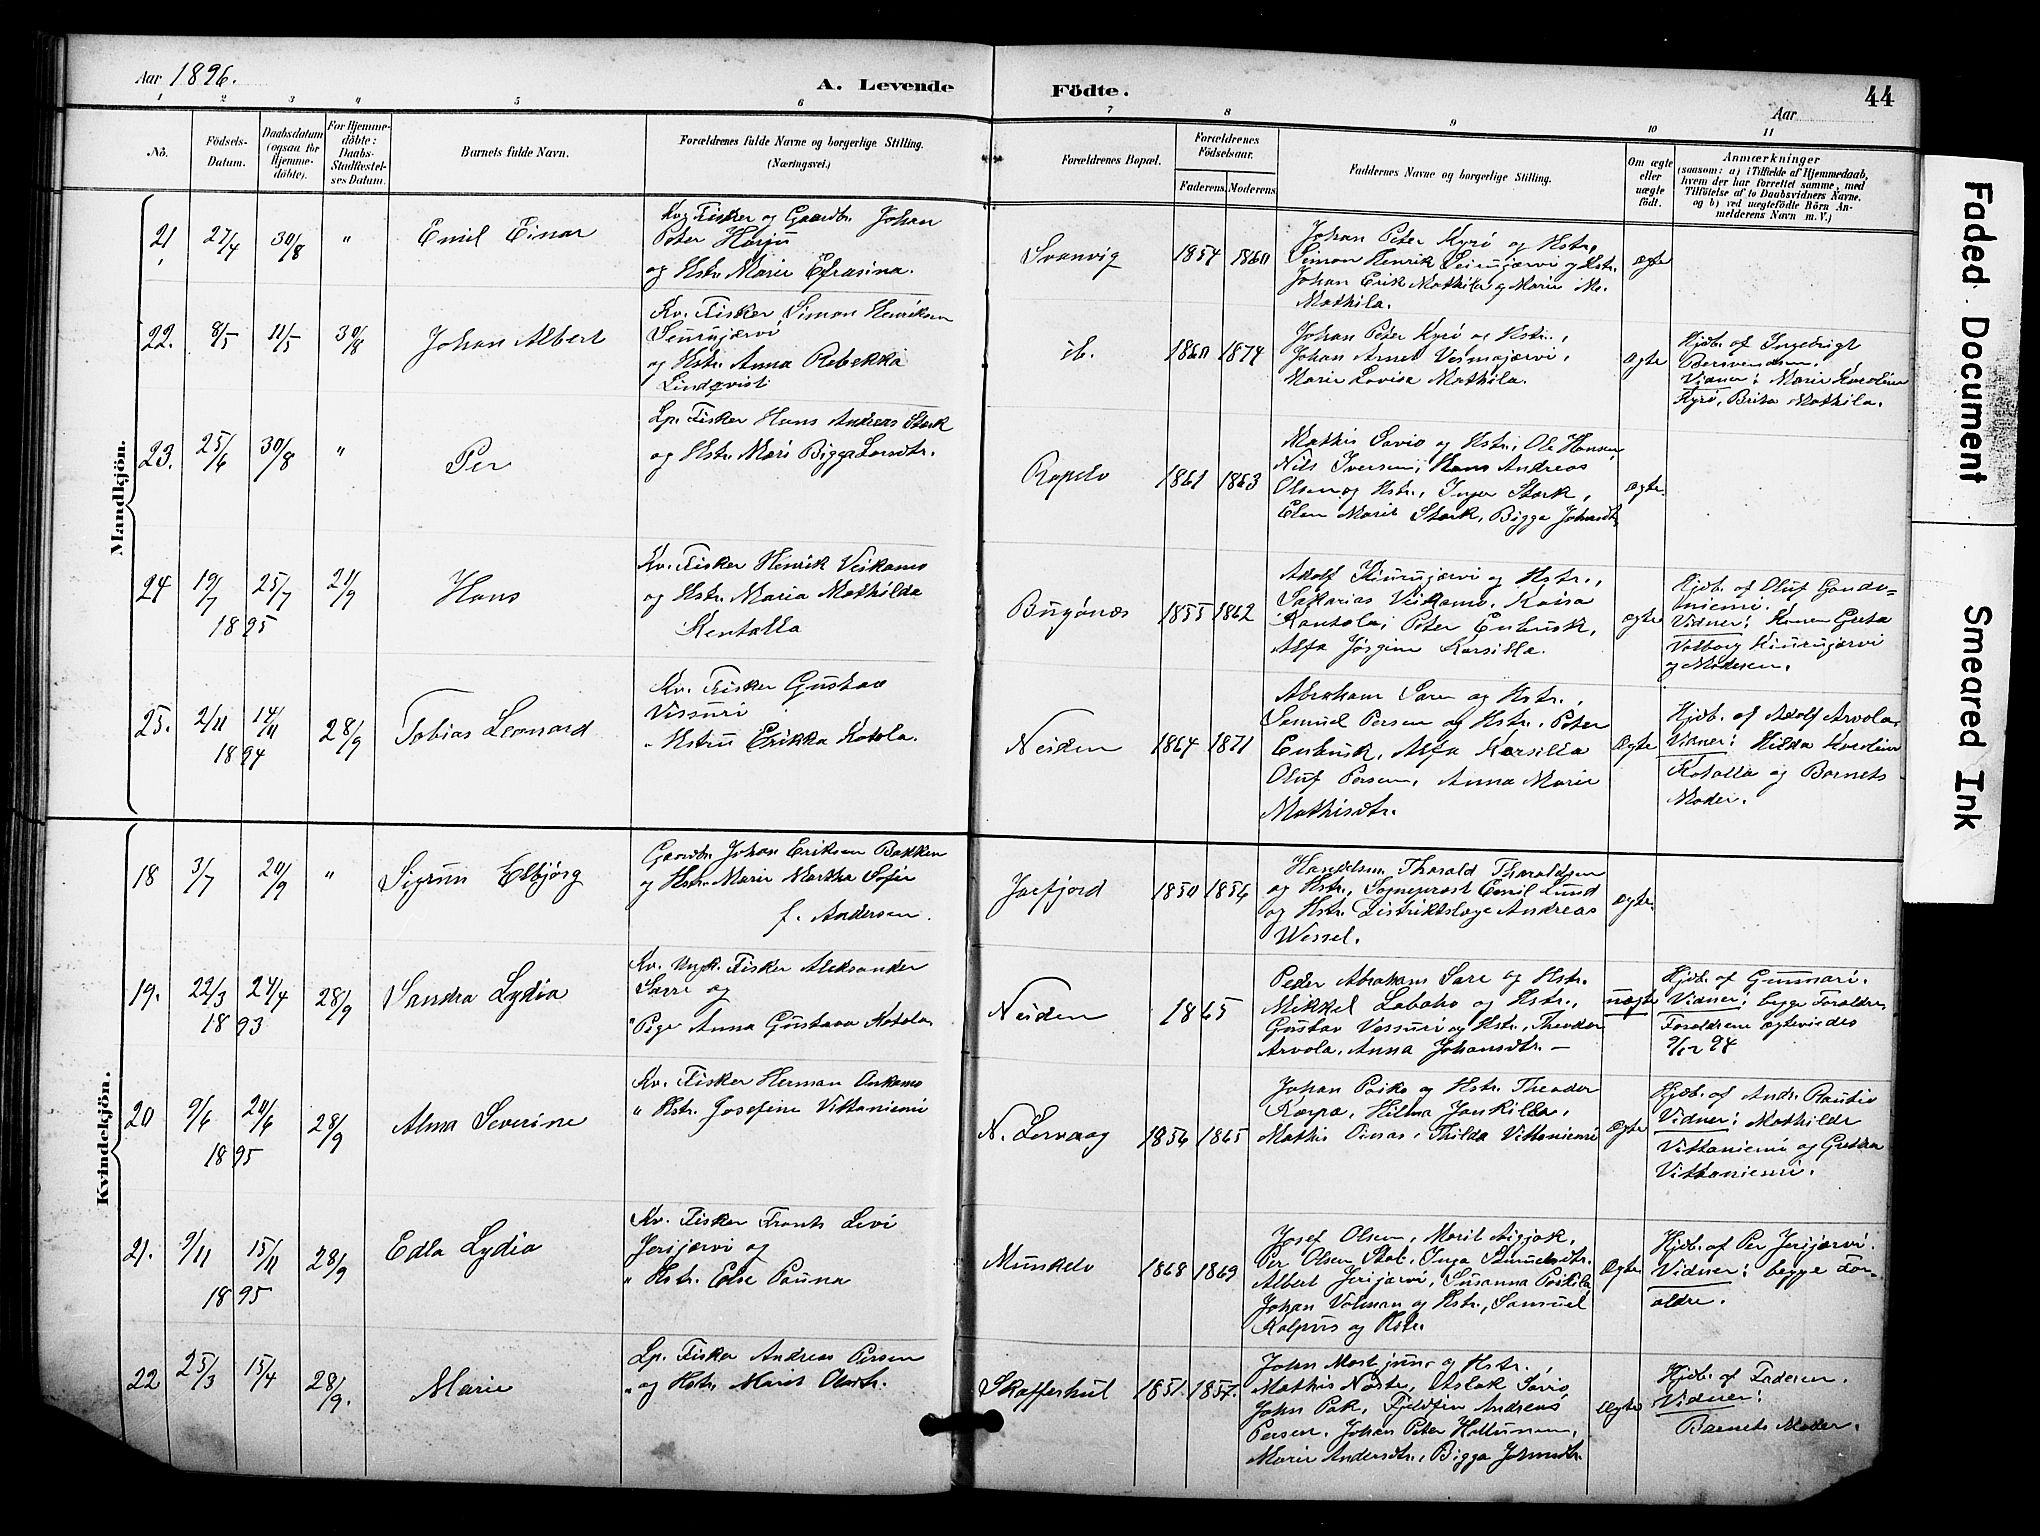 Aar 1896.
A. Levende
Födte.
Aar
44
1 2 3 4 5 6 7 8 9 10 11
No.
Födsels-
Datum.
Daabsdatum
(ogsaa for
Hjemme-
döbte).
For Hjemme-
döbte:
Daabs-
Stadfæstel-
ses Datum.
Barnets fulde Navn.
Forældrenes fulde Navne og borgerlige Stilling.
(Næringsvei.)
Forældrenes Bopæl.
Forældrenes
Födselsaar.
Faderens. Moderens.
Faddernes Navne og borgerlige Stilling.
Om ægte
eller
uægte
födt.
Anmærkninger
(saasom: a) i Tilfælde af Hjemmedaab,
hvem der har forrettet samme, med
Tilföielse af to Daabsvidners Navne,
og b) ved uægtefödte Börn An-
melderens Navn m. V.)
Mandkjön.
21. 27/4 30/8 " Emil Einar
Kv. Fisker og Gaardbr. Johan
Peter Harju
og Hstr. Marie Efrasina.
Svanvig 1854 1860
Johan Peter Kyrö og Hstr.,
Simon Henrik Seirujærvi og Hstr.
Johan Erik Mathila og Marie M.
Mathila.
ægte
22. 8/5 11/5 30/8 Johan Albert
Kv. Fisker Simon Henriksen
Seurujærvi
og Hstr. Anna Rebekka
Lindqvist
ib. 1860 1874
Johan Peter Kyrö og Hstr.,
Johan Arnet Vesmajærvi,
Marie Lovisa Mathila.
ægte
Hjdb. af Ingebrigt
Bersvendsen.
Vidner: Marie Karoline
Kyrö, Brita Mathila.
23. 25/6 30/8 " Per
Lp. Fisker Hans Andreas Stork
og Hstr. Mari Bigga Larsdtr.
Ropelv 1861 1863
Mathis Savio og Hstr., Ole Hansen,
Nils Iversen, Hans Andreas
Olsen og Hstr., Inger Stork,
Elen Marit Stork, Bigga Johnsdtr.
ægte
24 19/7 25/7 21/9 Hans
1895
Kv. Fisker Henrik Veikamo
og Hstr. Maria Mathilda
Kentalla
Bugönæs 1855 1862
Adolf Kiurujærvi og Hstr.,
Sakarias Veikamo, Kaisa
Kantola, Peter Enbusk,
Alfa Jørgine Karsikka.
ægte
Hjdb. af Oluf
niemi.
Vidner: Karen Greta
Valborg Kiurujærvi
og Moderen.
25. 2/11 14/11 28/9 Tobias Leonard
1894
Kv. Fisker Gustav
Vissuri
" Hstru Erikka Kotola.
Neiden 1864 1871
Abraham Sare og Hstr.,
Semuel Persen og Hstr., Peter
Enbusk, Alfa Karsikka
Oluf Persen, Anna Marie
Mathisdtr.
Ægte
Hjdb. af Adolf Arvola
Vidner: Hilda Karoline
Kotalla og Barnets
Moder.
Kvindekjön.
18 3/7 20/9 " Sigrun Elbjörg
Gaardbr. Johan Eriksen Bakken
og Hstr. Marie Martha Sofie
f. Andersen.
Jarfjord 1850 1856
Handelsm. Tharald Tharaldsen
og Hstr., Sogneprest Emil Lund
og Hstr. Distriktslæge Andreas
Wessel.
ægte
19. 22/3 24/4 28/9 Sandra Lydia
1893
Kv. Ungk. Fisker Aleksander
Sarre og
" Pige Anna Gustava Kotola
Neiden 1865
Peder Abrahams Sare og Hstr.
Mikkel Labaho og Hstr.,
Gustav Vessuri og Hstr., Theodor
Arvola, Anna Johansdtr. –
uægte
Hjdb. af Gunnari.
Vidner: begge Foraldre.
Foraldrene ægteviedes
9/12 94
20 9/6 20/6 28/9 Alma Severine
1895
Kv. Fisker Herman Onkamo
" Hstr. Josefine Vittaniemi
N. Lervaag 1856 1865
Johan Poiko og Hstr. Theodor
Karpa, Hilma Jankilla,
Mathis Oinas, Thilda Vittaniemi
Ægte
Hjdb. af Andr. Rautio
Vidner: Mathilde
Vittaniemi og Grethe
Vittaniemi.
21. 9/11 15/11 28/9 Edla Lydia
1895
Kv. Fisker Frants Levi
Jerijærvi og
" Hstr. Else Pauna
Munkelv 1868 1869
Josef Olsen, Marit Aigjok,
Per Olsen Stab., Inga Samuelsdtr.
Albert Jerijærvi, Susanna Poikila,
Johan Volman og Hstr., Samuel
Kalpus og Hstr.
Ægte
Hjdb. af Per Jerijærvi.
Vidner: begge For-
aldre.
22 25/3 15/4 28/9. Marie
Lp. Fisker Andreas Persen
" og Hstr. Marit Olsdtr.
Skafferhul 1851. 1857.
John Mostjun og Hstr.,
Mathis Noste, Aslak Savio,
John Pak, Fjeldfin Andreas
Persen, Johan Peter Hottinen,
Marie Andersdtr., Bigga Johnsdtr.
Ægte
Hjdb. af Faderen.
Vidner:
Barnets Moder.
Faded Document
Smeared Ink